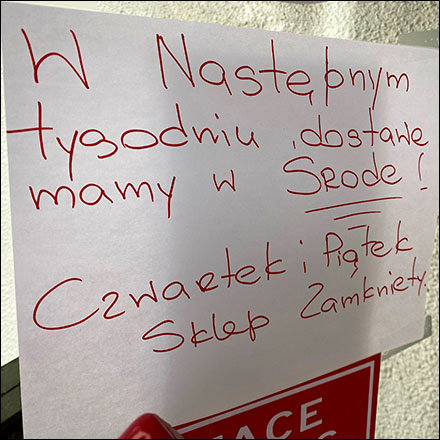 W Następnym
tygodniu , dostawę
mamy w Środę !
Czwartek i Piątek
Sklep Zamknięty.
FACE